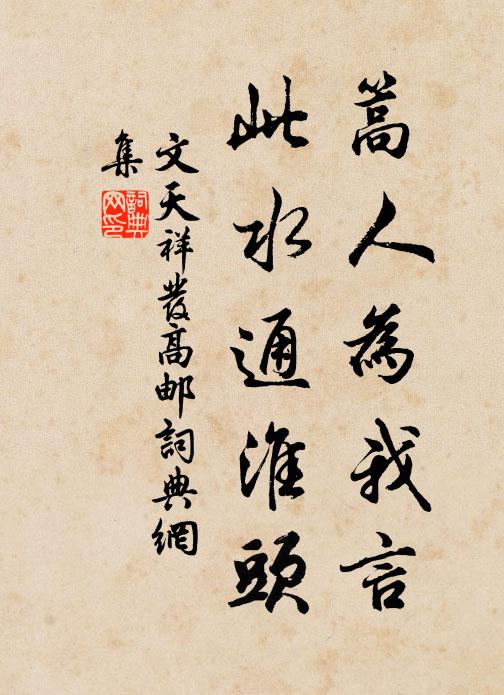 篙人為我言
此水通淮頭
文天祥發高邮詞典網
集
詞典
网印